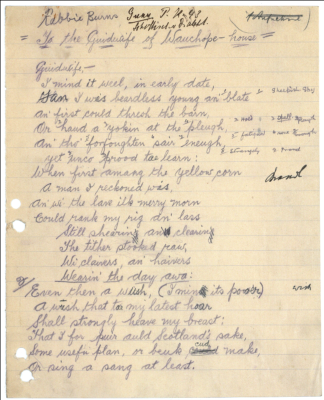 Rabbie Burns
= To the Guidwife of Wauchope-house =
Guidwife—
I mind it weel, in early date,
When I was beardless young an' blate
An first could thresh the barn,
Or haud a yokin at the pleugh,
An tho' forfoughten sair eneugh,
yet unco prood tae learn:
When first amang the yellow corn
A man I reckoned was,
An wi the lave ilk merry morn
Could rank my rig an' lass
Still shearing and clearing
The tither stooked raw,
Wi claivers, an haivers
Wearin' the day awa:
Even then a wish, (I mind its poo'r) wish
A wish that tae my latest hour
Shall strongly heave my breast;
That I for puir auld Scotland's sake,
Some usefu plan, or beuk could make,
Or sing a sang at least.